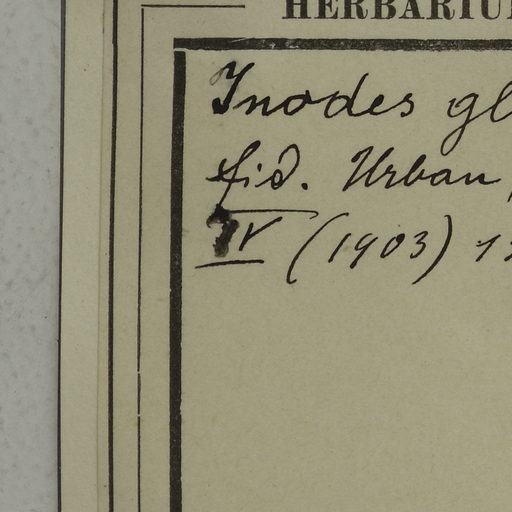 HERBARIU
Inodes gl
fid. Urban
IV (1903) 1